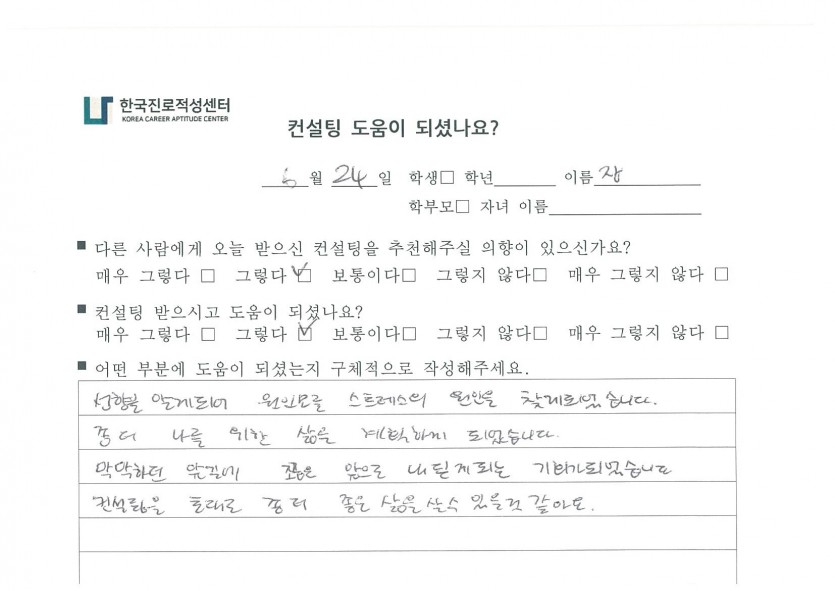 한국진로적성센터
KOREA CAREER APTITUDE CENTER
컨설팅 도움이 되셨나요?
6월 24일 학생□ 학년 이름 장
학부모□ 자녀 이름
■ 다른 사람에게 오늘 받으신 컨설팅을 추천해주실 의향이 있으신가요?
매우 그렇다 □ 그렇다 ☑ 보통이다□ 그렇지 않다□ 매우 그렇지 않다 □
■ 컨설팅 받으시고 도움이 되셨나요?
매우 그렇다 □ 그렇다 ☑ 보통이다□ 그렇지 않다□ 매우 그렇지 않다 □
■ 어떤 부분에 도움이 되셨는지 구체적으로 작성해주세요.
성향을 알게되어 원인모를 스트레스의 원인을 찾게되었습니다.
좀 더 나를 위한 삶을 계획하게 되었습니다.
막막하던 앞길에 앞으로 내딛게되는 계기가되었습니다
컨설팅을 토대로 좀 더 좋은 삶을 살수 있을것 같아요.